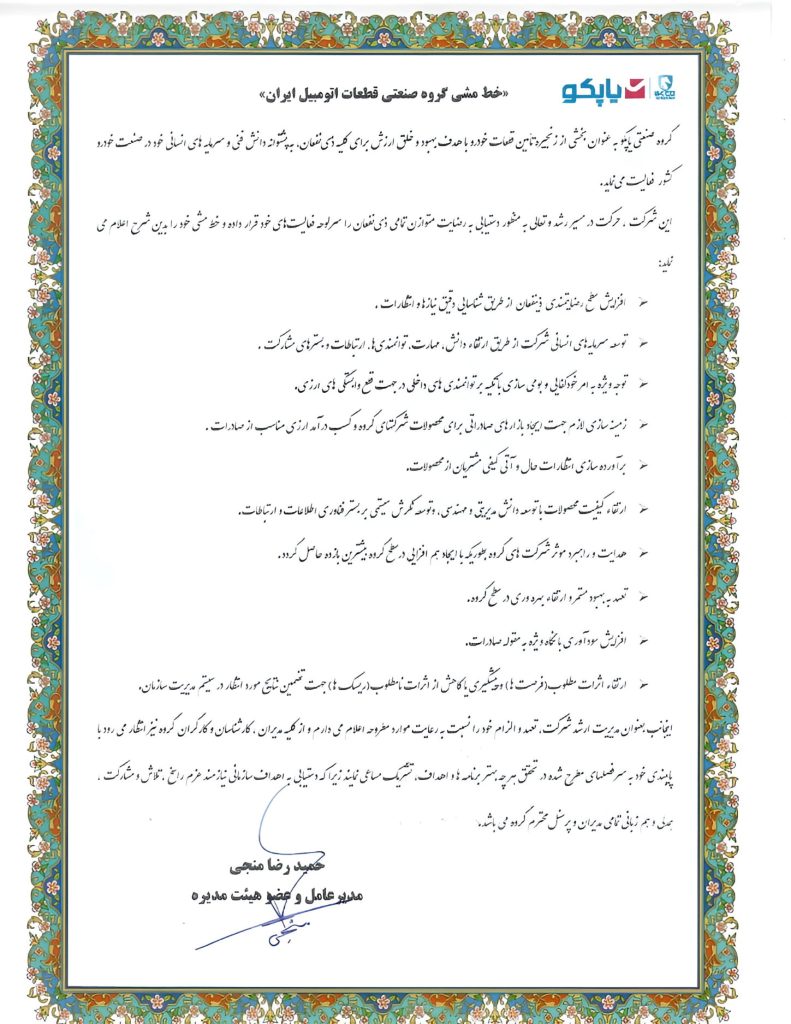 یاپکو
«خط مشی گروه صنعتی قطعات اتومبیل ایران»
گروه صنعتی یاپکو به عنوان بخشی از زنجیره تأمین قطعات خودرو با هدف بهبود و خلق ارزش برای کلیه ذی نفعان، به پشتوانه دانش فنی و سرمایه های انسانی خود در صنعت خودرو
کشور فعالیت می نماید.
این شرکت ، حرکت در مسیر رشد و تعالی به منظور دستیابی به رضایت متوازن تمامی ذی نفعان را سرلوحه فعالیت‌های خود قرار داده و خط مشی خود را بدین شرح اعلام می
نماید:
افزایش سطح رضایتمندی ذینفعان از طریق شناسایی دقیق نیازها و انتظارات .
توسعه سرمایه‌های انسانی شرکت از طریق ارتقاء دانش، مهارت، توانمندی‌ها، ارتباطات و بسترهای مشارکت .
توجه ویژه به امر خودکفایی و بومی سازی با تکیه بر توانمندی های داخلی در جهت قطع وابستگی های ارزی.
زمینه سازی لازم جهت ایجاد بازارهای صادراتی برای محصولات شرکتهای گروه و کسب درآمد ارزی مناسب از صادرات .
برآورده سازی انتظارات حال و آتی کیفی مشتریان از محصولات.
ارتقاء کیفیت محصولات با توسعه دانش مدیریتی و مهندسی، وتوسعه نگرش سیستمی بر بستر فناوری اطلاعات و ارتباطات.
هدایت و راهبرد موثر شرکت های گروه بطوریکه با ایجاد هم افزایی در سطح گروه بیشترین بازده حاصل گردد.
تعهد به بهبود مستمر و ارتقاء بهره وری در سطح گروه.
افزایش سودآوری با نگاه ویژه به مقوله صادرات.
ارتقاء اثرات مطلوب(فرصت ها) و پیشگیری یا کاهش از اثرات نامطلوب(ریسک ها) جهت تضمین نتایج مورد انتظار در سیستم مدیریت سازمان.
اینجانب بعنوان مدیریت ارشد شرکت، تعهد و الزام خود را نسبت به رعایت موارد مطروحه اعلام می دارم و از کلیه مدیران ، کارشناسان و کارگران گروه نیز انتظار می رود با
پایبندی خود به سرفصلهای مطرح شده در تحقق هر چه بهتر برنامه ها و اهداف، تشریک مساعی نمایند زیرا که دستیابی به اهداف سازمانی نیازمند عزم راسخ ، تلاش و مشارکت ،
همدلی و هم زبانی تمامی مدیران و پرسنل محترم گروه می باشد.
حمید رضا منجی
مدیرعامل و عضو هیئت مدیره